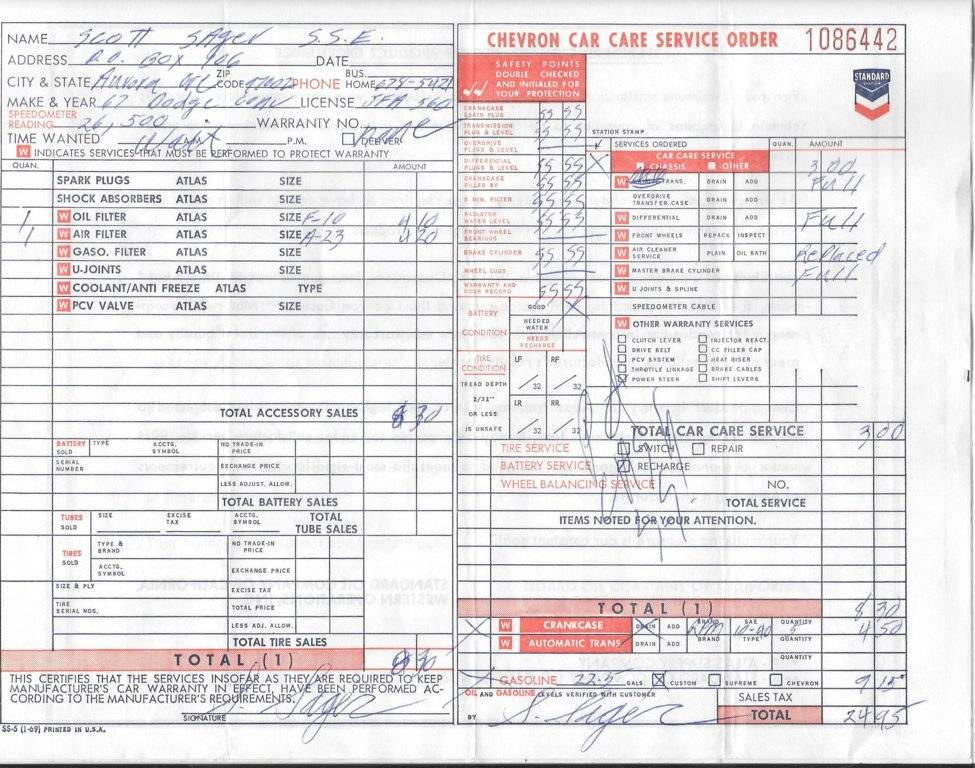 NAME Scott Sager S.S.E.
ADDRESS P.O. Box 906 DATE
CITY & STATE Aurora ZIP CODE 97002 PHONE BUS. HOME 678-5421
MAKE & YEAR 67 Dodge Conv LICENSE JFA 560
SPEEDOMETER READING 26,500 WARRANTY NO.
TIME WANTED Wait P.M. DELIVER
W INDICATES SERVICES THAT MUST BE PERFORMED TO PROTECT WARRANTY
QUAN. AMOUNT
SPARK PLUGS ATLAS SIZE
SHOCK ABSORBERS ATLAS SIZE
1 W OIL FILTER ATLAS SIZE F-10 4 10
1 W AIR FILTER ATLAS SIZE A-23 4 20
W GASO. FILTER ATLAS SIZE
W U-JOINTS ATLAS SIZE
W COOLANT/ANTI FREEZE ATLAS TYPE
W PCV VALVE ATLAS SIZE
TOTAL ACCESSORY SALES 8 30
BATTERY SOLD TYPE ACCTG. SYMBOL NO TRADE-IN PRICE
SERIAL NUMBER EXCHANGE PRICE
LESS ADJUST. ALLOW.
TOTAL BATTERY SALES
TUBES SOLD SIZE EXCISE TAX ACCTG. SYMBOL TOTAL TUBE SALES
TIRES SOLD TYPE & BRAND NO TRADE-IN PRICE
ACCTG. SYMBOL EXCHANGE PRICE
SIZE & PLY EXCISE TAX
TIRE SERIAL NOS. TOTAL PRICE
LESS ADJ. ALLOW.
TOTAL TIRE SALES
TOTAL (1) 8 30
THIS CERTIFIES THAT THE SERVICES INSOFAR AS THEY ARE REQUIRED TO KEEP
MANUFACTURER'S CAR WARRANTY IN EFFECT, HAVE BEEN PERFORMED AC-
CORDING TO THE MANUFACTURER'S REQUIREMENTS.
SIGNATURE S. Sager
SS-5 (1-69) PRINTED IN U.S.A.
CHEVRON CAR CARE SERVICE ORDER 1086442
SAFETY POINTS
DOUBLE CHECKED
AND INITIALED FOR
YOUR PROTECTION
STANDARD
CRANKCASE DRAIN PLUG SS SS
TRANSMISSION PLUG & LEVEL SS SS
OVERDRIVE PLUGS & LEVEL
DIFFERENTIAL PLUGS & LEVEL SS SS
CRANKCASE FILLED BY SS SS
S MIN. FILTER SS SS
RADIATOR WATER LEVEL SS SS
FRONT WHEEL BEARINGS
BRAKE CYLINDER SS SS
WHEEL LUGS
WARRANTY AND DOOR RECORD SS SS
BATTERY CONDITION GOOD
NEEDED WATER
NEEDS RECHARGE
TIRE CONDITION LF /32 RF /32
TREAD DEPTH 2/32" OR LESS IS UNSAFE LR /32 RR /32
STATION STAMP
SERVICES ORDERED QUAN. AMOUNT
CAR CARE SERVICE CHASSIS OTHER 3.00
W TRANS. DRAIN ADD Full
OVERDRIVE TRANSFER CASE DRAIN ADD
W DIFFERENTIAL DRAIN ADD Full
W FRONT WHEELS REPACK INSPECT
W AIR CLEANER SERVICE PLAIN OIL BATH Replaced
W MASTER BRAKE CYLINDER Full
W U JOINTS & SPLINE
SPEEDOMETER CABLE
W OTHER WARRANTY SERVICES
CLUTCH LEVER INJECTOR REACT.
DRIVE BELT CC FILLER CAP
PCV SYSTEM HEAT RISER
THROTTLE LINKAGE BRAKE CABLES
POWER STEER SHIFT LEVERS
TOTAL CAR CARE SERVICE 3 00
TIRE SERVICE SWITCH REPAIR
BATTERY SERVICE RECHARGE
WHEEL BALANCING SERVICE NO.
TOTAL SERVICE
ITEMS NOTED FOR YOUR ATTENTION.
TOTAL (1) 8 30
W CRANKCASE DRAIN ADD BRAND RPM SAE TYPE QUANTITY 5 4 50
W AUTOMATIC TRANS. DRAIN ADD BRAND TYPE QUANTITY
QUANTITY
GASOLINE 22.5 GALS. CUSTOM SUPREME CHEVRON 9 15
OIL AND GASOLINE LEVELS VERIFIED WITH CUSTOMER SALES TAX
BY S. Sager TOTAL 24 95